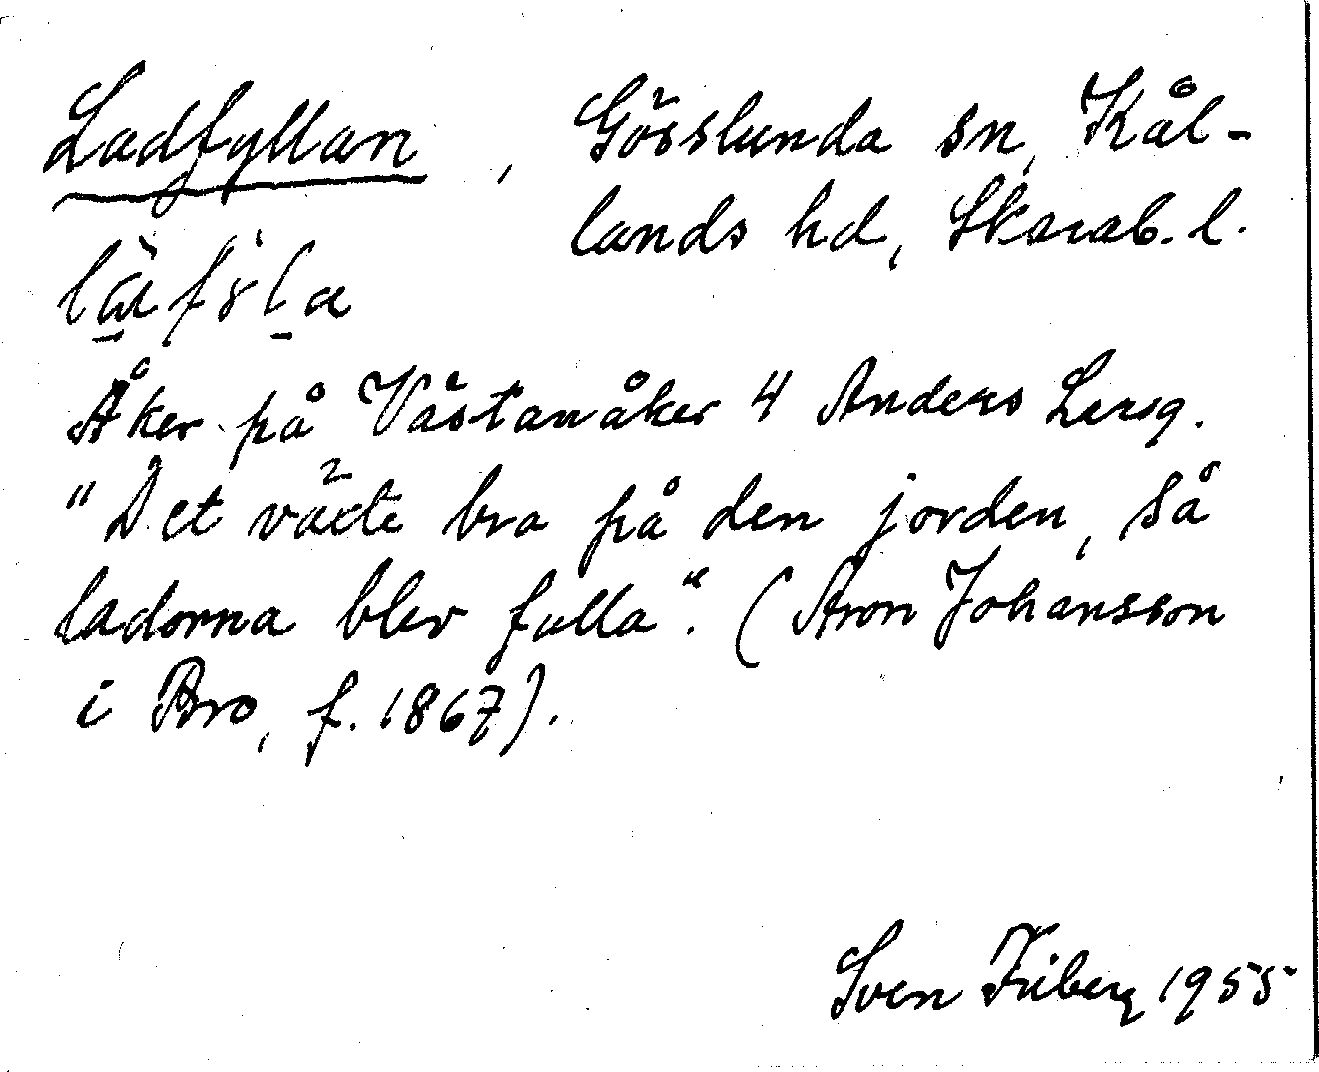 Ladfyllan, Gösslunda sn, Kål-
lands hd, Skarab. l.
Åker på Västanåker 4 Anders Larsg.
"Det växte bra på den jorden, så
ladorna blev fulla". (Aron Johansson
i Bro, f. 1867).
Sven Friberg 1955